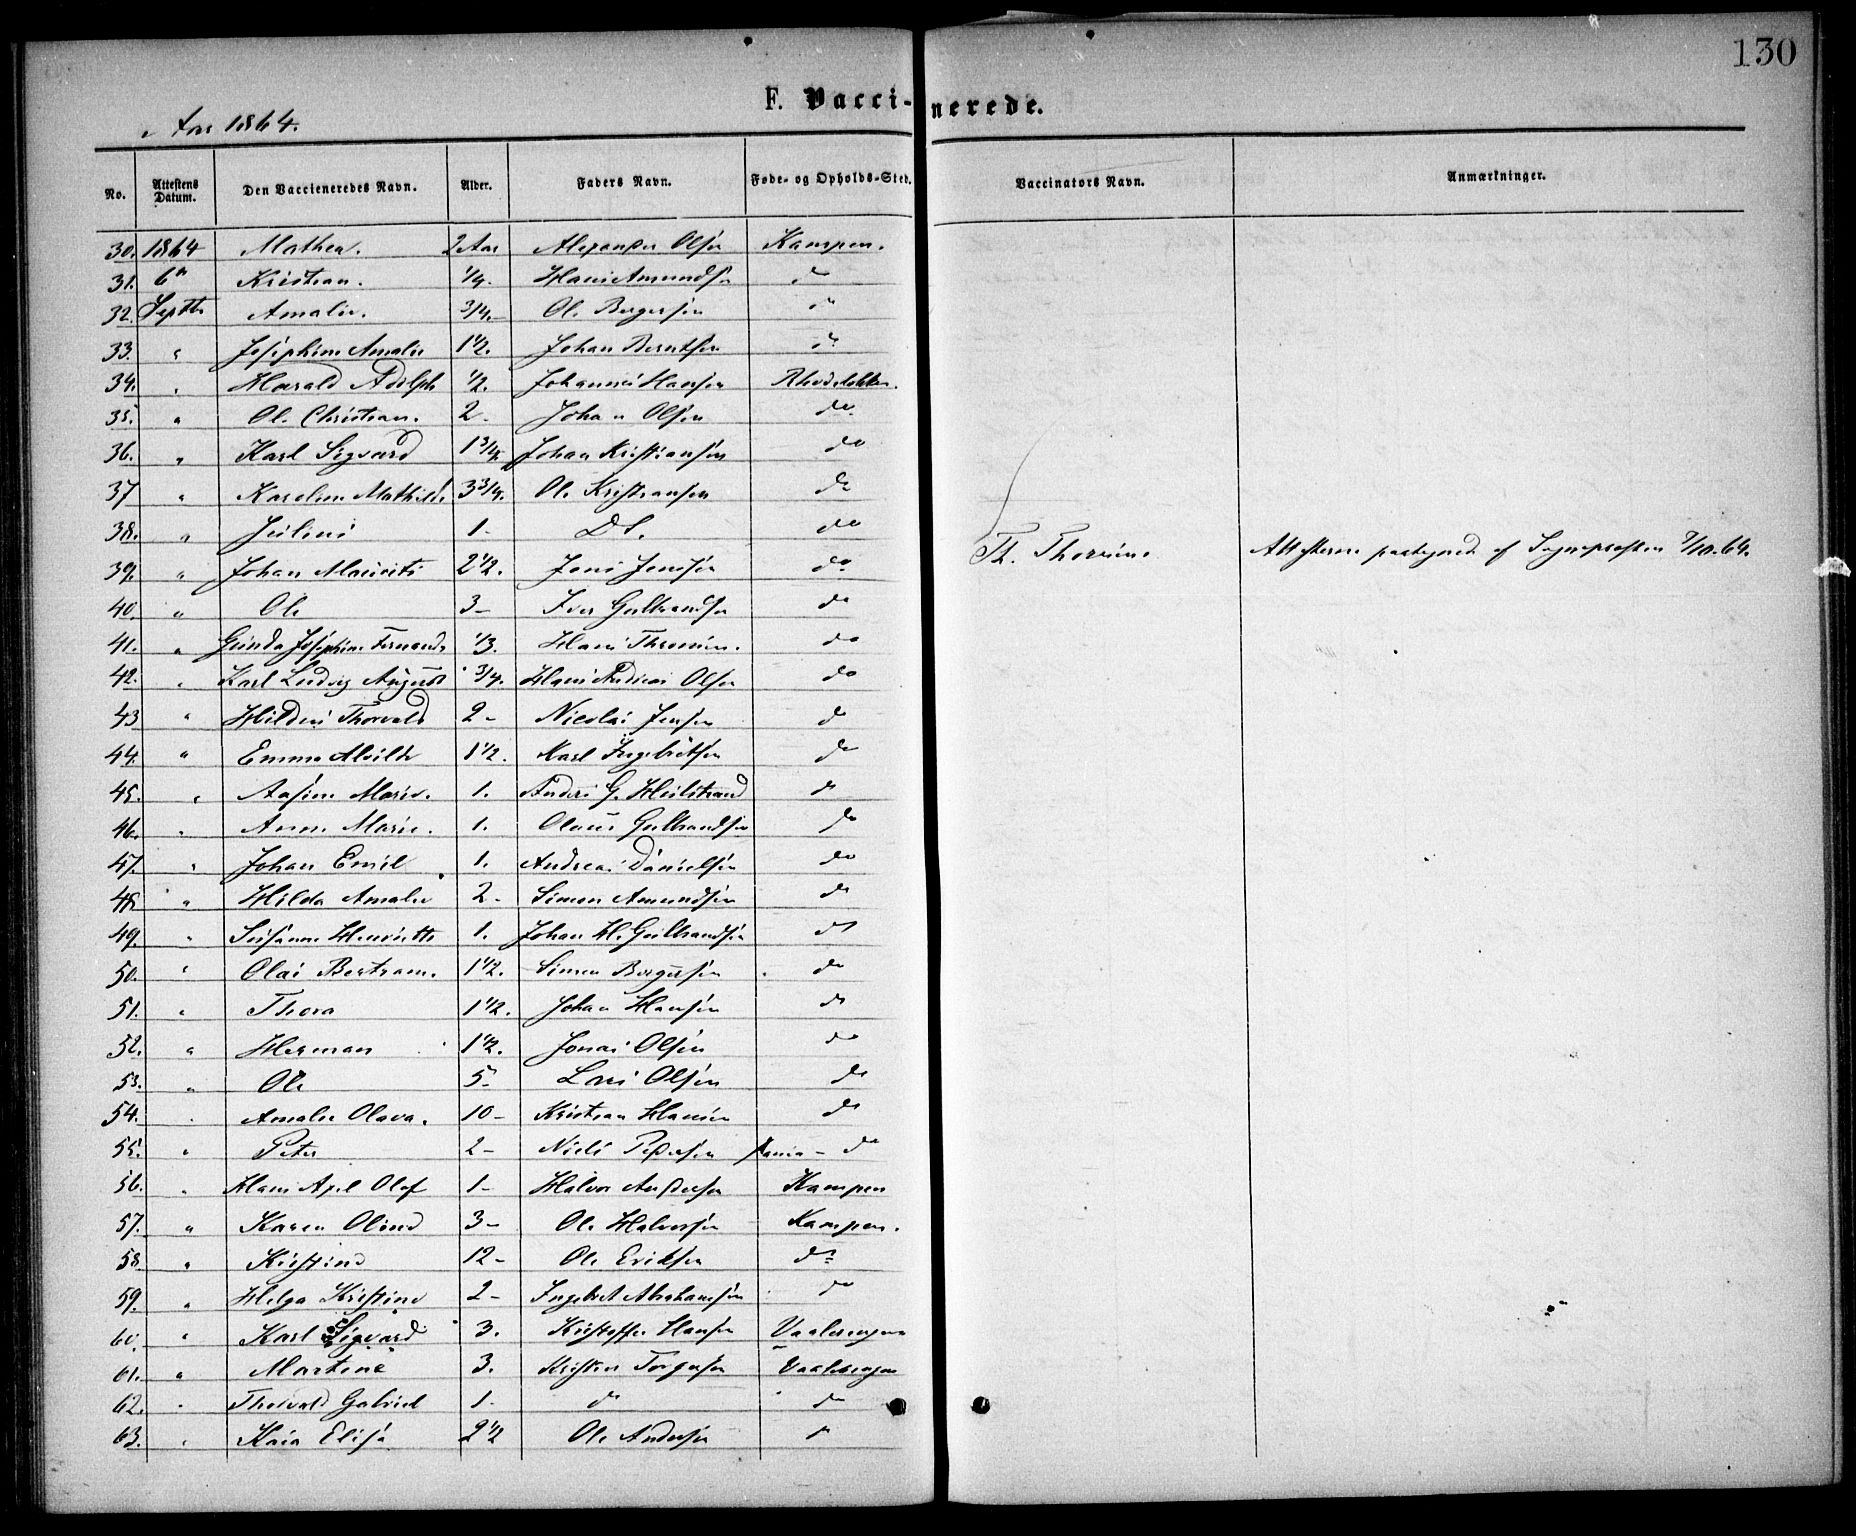 130
F. Vaccinerede.
i Aar 1864.
No. Attestens Datum. Den Vaccieneredes Navn. Alder. Faders Navn. Føde- og Opholds-Sted. Vaccinators Navn. Anmærkninger.
30. 1864 Mathea. 2 Aar Alexander Olsen Kampen.
31. 6te Kristian. 1/4. Hans Amundsen do
32. Septbr Amalie. 3/4 - Ole Bergersen do
33. " Josephine Amalie 1 1/2. Johan Berntsen do
34. " Harald Adolph 1/2. Johannes Hansen Rhodeløkken.
35. " Ole Christian. 2 - Johan Olsen do
36. " Karl Sigvard 1 3/4 Johan Kristiansen do
37 " Karoline Mathilde 3 3/4. Ole Kristiansen do
38. " Julius 1 - Do. do
39. " Johan Mauritz 2 1/2. Jens Jensen do Th. Thoresen Attesterne paategnet af Sognepræsten 7/10. 64.
40. " Ole 3 - Iver Gulbrandsen do
41. " Gunda Josephine Fernanda 1/3. Hans Thoresen. do
42. " Karl Ludvig August 3/4. Hans Andreas Olsen do
43 " Thorvald 2 - Nicolai Jensen do
44. " Emma Alvilde 1 1/2. Karl Ingebretsen do
45. " Aasine Marie. 1. Anders G. do
46. " Anne Marie. 1. Olaus Gulbrandsen do
47. " Johan Emil 1. Andreas Danielsen do
48 " Hilda Amalie 2 - Simon Amundsen do
49. " Susanne Henriette 1. Johan H. Gulbrandsen do
50. " Olai Bertram. 1 1/2. Simen Borgersen do
51. " Thora 1 1/2. Johan Hansen do
52. " Herman 1 1/2. Jonas Olsen do
53. " Ole 5 - Lars Olsen do
54. " Amalie Olava. 10 - Kristian Hansen do
55. " Peter 2 - Niels Pedersen do
56. " Hans Axel Olaf 1 - Halvor Andersen Kampen
57. " Karen Oline 3 - Ole Halvorsen Kampen.
58 " Kirstine 12 - Ole Eriksen do
59. " Helga Kristine 2 - Ingebret Abrahamsen do
60. " Karl Sigvard 3. Kristoffer Hansen Vaalerengen
61. " Martine 3. Kristen Torgersen Vaalerengen
62. " Thorvald Gabriel 1. do do
63. " Kaia Elisa 2 1/2 Ole Andersen "